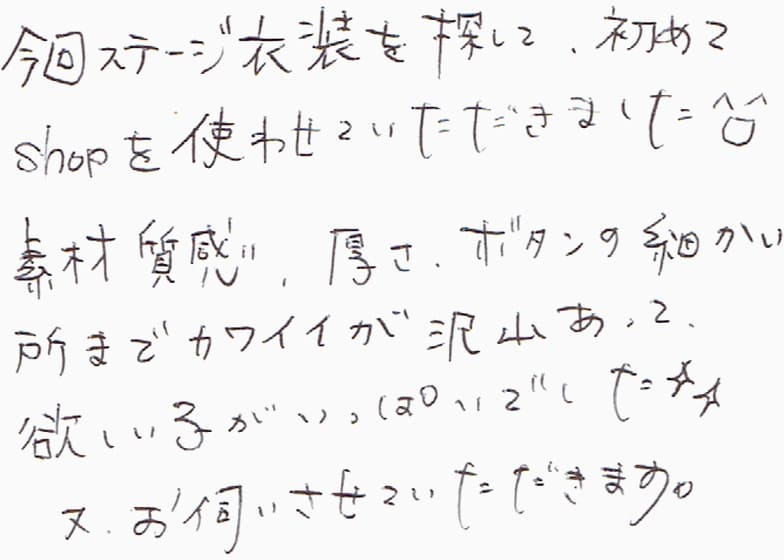 今回ステージ衣装を探して、初めて
shopを使わせていただきました^^
素材質感、厚さ、ボタンの細かい
所までカワイイが沢山あって、
欲しい子がいっぱいでした☆☆
又、お伺いさせていただきます。